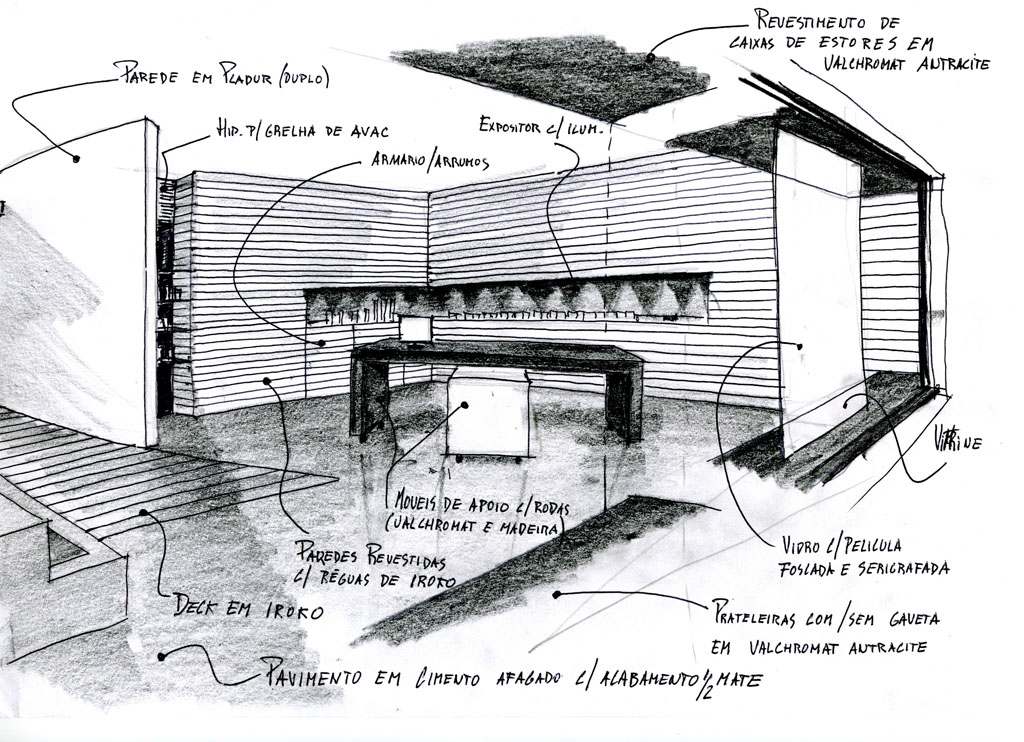 REVESTIMENTO DE
CAIXAS DE ESTORES EM
VALCHROMAT ANTRACITE
PAREDE EM PLADUR (DUPLO)
HIP. P/ GRELHA DE AVAC
EXPOSITOR C/ ILUM.
ARMARIO/ARRUMOS
VITRINE
MOVEIS DE APOIO C/RODAS
(VALCHROMAT E MADEIRA)
PAREDES REVESTIDAS
C/ RÉGUAS DE IROKO
VIDRO C/ PELICULA
FOSCADA E SERIGRAFADA
DECK EM IROKO
PRATELEIRAS COM/SEM GAVETA
EM VALCHROMAT ANTRACITE
PAVIMENTO EM CIMENTO AFAGADO C/ ACABAMENTO 1/2 MATE